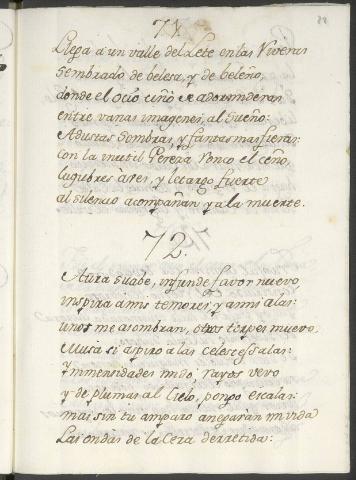 71.
Llega a un valle del Lete en las riveras
Sembrado de belesa, y de beleño,
donde el ocio ciñó de adormideras
entre vanas imagenes, al Sueño:
Adustas Sombras, y fantasmas fieras:
con la inutil Pereza ronco el ceño,
lugubres àves, y letargo fuerte
al silencio acompañan y a la muerte.
72.
Aura suabe, infunde favor nuevo
inspira a mis temores, y a mis alas:
unos me asombran, otros torpes muevo.
Musa si aspiro a las celestes salas:
Ymmensidades mido, rayos vevo
y de plumas al Cielo, pongo escalas:
mas sin tu amparo anegarán mi vida
Las ondas de la Cera derretida: